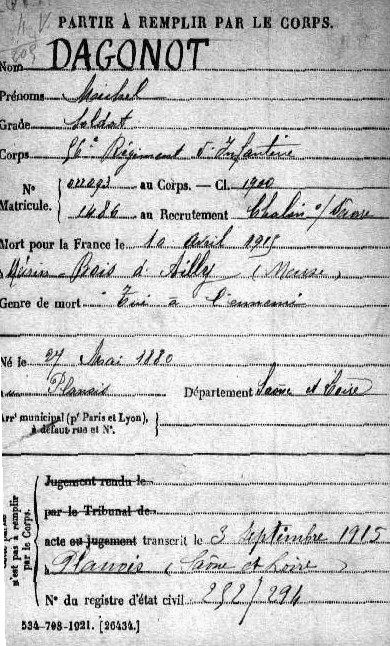 PARTIE À REMPLIR PAR LE CORPS.
Nom DAGONOT
Prénoms Michel
Grade Soldat
Corps 56e Régiment d'Infanterie
N° Matricule.
011093 au Corps. — Cl. 1900
1486 au Recrutement Chalon s/ Saone
Mort pour la France le 10 avril 1915
Bois d'Ailly (Meuse)
Genre de mort Tué à l'ennemi
Né le 27 Mai 1880
Planois Département Saône et Loire
Arrt municipal (pr Paris et Lyon),
à défaut rue et N°.
Jugement rendu le
par le Tribunal de
acte ou jugement transcrit le 3 septembre 1915
Planois (Saône et Loire)
N° du registre d'état civil 292/294
n'est pas à remplir
par le Corps.
534-708-1921. [26434.]